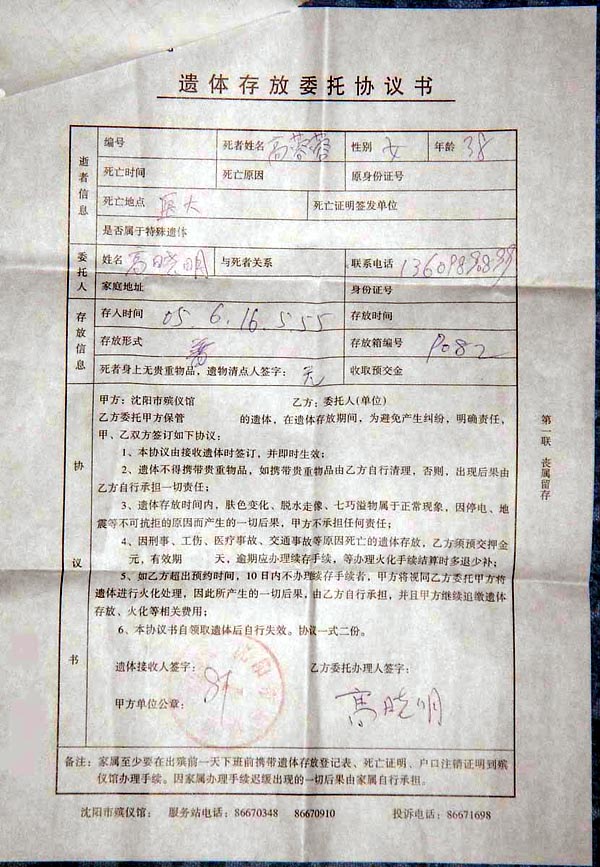 遗体存放委托协议书
逝者信息
编号 死者姓名 高蓉蓉 性别 女 年龄 38
死亡时间 死亡原因 原身份证号
死亡地点 医大 死亡证明签发单位
是否属于特殊遗体
委托人
姓名 高晓明 与死者关系 联系电话
家庭地址 身份证号
存放信息
存入时间 05.6.16.5.55 存放时间
存放形式 存放箱编号 P082
死者身上无贵重物品，遗物清点人签字： 无 收取预交金
协议书
甲方：沈阳市殡仪馆 乙方：委托人(单位)
乙方委托甲方保管 的遗体，在遗体存放期间，为避免产生纠纷，明确责任，
甲、乙双方签订如下协议：
1、本协议由接收遗体时签订，并即时生效；
2、遗体不得携带贵重物品，如携带贵重物品由乙方自行清理，否则，出现后果由
乙方自行承担一切责任；
3、遗体存放时间内，肤色变化、脱水走像、七巧溢物属于正常现象，因停电、地
震等不可抗拒的原因而产生的一切后果，甲方不承担任何责任；
4、因刑事、工伤、医疗事故、交通事故等原因死亡的遗体存放，乙方须预交押金
元，有效期 天，逾期应办理续存手续，等办理火化手续结算时多退少补；
5、如乙方超出预约时间，10日内不办理续存手续者，甲方将视同乙方委托甲方将
遗体进行火化处理，因此所产生的一切后果，由乙方自行承担，并且甲方继续追缴遗体
存放、火化等相关费用；
6、本协议书自领取遗体后自行失效。协议一式二份。
遗体接收人签字： 乙方委托办理人签字：
甲方单位公章： 高晓明
第一联 丧属留存
备注：家属至少要在出殡前一天下班前携带遗体存放登记表、死亡证明、户口注销证明到殡
仪馆办理手续。因家属办理手续迟缓出现的一切后果由家属自行承担。
沈阳市殡仪馆： 服务站电话：86670348 86670910 投诉电话：86671698